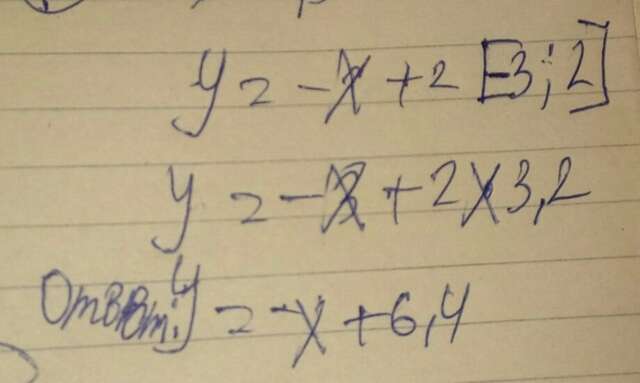 y = -x + 2 [-3; 2]
y = -x + 2 x 3,2
Ответ: y = -x + 6,4